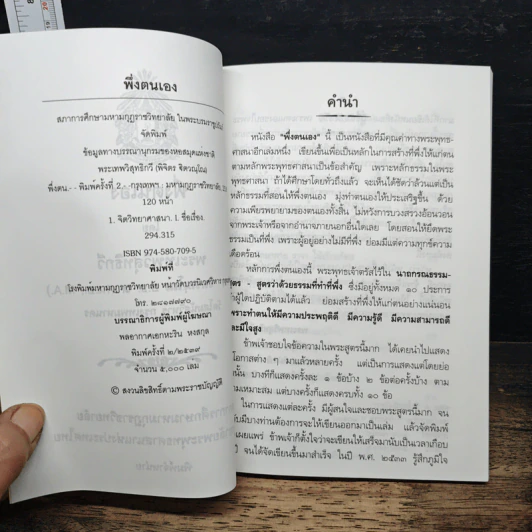 พึ่งตนเอง
สภาการศึกษามหามกุฏราชวิทยาลัย ในพระบรมราชูปถัมภ์
จัดพิมพ์
ข้อมูลทางบรรณานุกรมของหอสมุดแห่งชาติ
พระเทพวิสุทธิกวี (พิจิตร ฐิตวณฺโณ)
พึ่งตน.- - พิมพ์ครั้งที่ 2.- -กรุงเทพฯ : มหามกุฏราชวิทยาลัย,
120 หน้า
1. จิตวิทยาศาสนา. I. ชื่อเรื่อง.
294.315
ISBN 974-580-709-5
พิมพ์ที่
โรงพิมพ์มหามกุฏราชวิทยาลัย หน้าวัดบวรนิเวศวิหาร
โทร.
บรรณาธิการผู้พิมพ์ผู้โฆษณา
พลอากาศเอกหะริน หงสกุล
พิมพ์ครั้งที่ ๒/๒๕๓๙
จำนวน ๕,๐๐๐ เล่ม
© สงวนลิขสิทธิ์ตามพระราชบัญญัติ
คำนำ
หนังสือ "พึ่งตนเอง" นี้ เป็นหนังสือที่มีคุณค่าทางพระพุทธ-
ศาสนาอีกเล่มหนึ่ง เขียนขึ้นเพื่อเป็นหลักในการสร้างที่พึ่งให้แก่ตน
ตามหลักพระพุทธศาสนาเป็นข้อสำคัญ เพราะหลักธรรมในพระ
พุทธศาสนา ถ้าได้ศึกษาโดยทั่วถึงแล้ว จะเห็นได้ชัดว่าล้วนแต่เป็น
หลักธรรมที่สอนให้พึ่งตนเอง มุ่งทำตนเองให้ประเสริฐขึ้น ด้วย
ความเพียรพยายามของตนเองทั้งสิ้น ไม่หวังการบวงสรวงอ้อนวอน
จากพระเจ้าหรือจากอำนาจภายนอกอื่นใดเลย โดยสอนให้ยึดพระ
ธรรมเป็นที่พึ่ง เพราะผู้อยู่อย่างไม่มีที่พึ่ง ย่อมมีแต่ความทุกข์ความ
เดือดร้อน
หลักการพึ่งตนเองนี้ พระพุทธเจ้าตรัสไว้ใน นาถกรณธรรม-
สูตร - สูตรว่าด้วยธรรมที่ทำที่พึ่ง ซึ่งมีอยู่ทั้งหมด ๑๐ ประการ
ถ้าผู้ใดปฏิบัติตามได้แล้ว ย่อมสร้างที่พึ่งให้แก่ตนอย่างแน่นอน
เพราะทำตนให้มีความประพฤติดี มีความรู้ดี มีความสามารถดี
และมีใจสูง
ข้าพเจ้าชอบใจข้อความในพระสูตรนี้มาก ได้เคยนำไปแสดง
โอกาสต่าง ๆ มาแล้วหลายครั้ง แต่เป็นการแสดงแต่โดยย่อ
นั้น บางทีก็แสดงครั้งละ ๑ ข้อบ้าง ๒ ข้อต่อครั้งบ้าง ตาม
ความเหมาะสม แต่บางครั้งก็แสดงครบทั้ง ๑๐ ข้อ
ในการแสดงแต่ละครั้ง มีผู้สนใจและชอบพระสูตรนี้มาก จน
บางท่านต้องการจะให้เขียนออกมาเป็นเล่ม แล้วจัดพิมพ์
เผยแพร่ ข้าพเจ้าก็ตั้งใจว่าจะเขียนให้เสร็จมานับเป็นเวลาเกือบ
ปี จนได้จัดเขียนขึ้นมาสำเร็จ ในปี พ.ศ. ๒๕๓๓ รู้สึกภูมิใจ